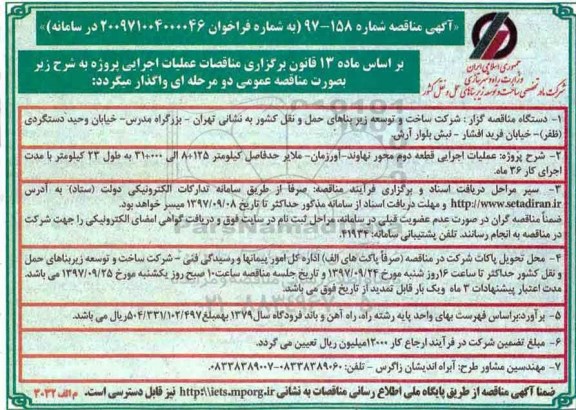 «آگهی مناقصه شماره ۱۵۸-۹۷ (به شماره فراخوان ۲۰۰۹۷۱۰۰۴۰۰۰۰۴۶ در سامانه)»
بر اساس ماده ۱۳ قانون برگزاری مناقصات عملیات اجرایی پروژه به شرح زیر
بصورت مناقصه عمومی دو مرحله ای واگذار میگردد:
جمهوری اسلامی ایران
وزارت راه و شهرسازی
شرکت مادر تخصصی ساخت و توسعه زیربناهای حمل و نقل کشور
۱- دستگاه مناقصه گزار : شرکت ساخت و توسعه زیر بناهای حمل و نقل کشور به نشانی تهران - بزرگراه مدرس- خیابان وحید دستگردی
(ظفر)- خیابان فرید افشار - نبش بلوار آرش.
۲- شرح پروژه: عملیات اجرایی قطعه دوم محور نهاوند-اورزمان- ملایر حدفاصل کیلومتر ۸+۱۲۵ الی ۳۱+۰۰۰ به طول ۲۳ کیلومتر با مدت
اجرای کار ۳۶ ماه.
۳- سیر مراحل دریافت اسناد و برگزاری فرآیند مناقصه: صرفا از طریق سامانه تدارکات الکترونیکی دولت (ستاد) به آدرس
http://www.setadiran.ir و مهلت دریافت اسناد از سامانه مذکور حداکثر تا تاریخ ۱۳۹۷/۰۹/۰۸ میسر خواهد بود.
ضمناً مناقصه گران در صورت عدم عضویت قبلی در سامانه، مراحل ثبت نام در سایت فوق و دریافت گواهی امضای الکترونیکی را جهت شرکت
در مناقصه به انجام رسانند. تلفن پشتیبانی سامانه: ۴۱۹۳۴.
۴- محل تحویل پاکات شرکت در مناقصه (صرفاً پاکت های الف) اداره کل امور پیمانها و رسیدگی فنی - شرکت ساخت و توسعه زیربناهای حمل
و نقل کشور حداکثر تا ساعت ۱۶روز شنبه مورخ ۱۳۹۷/۰۹/۲۴ و تاریخ جلسه مناقصه ساعت۱۰ صبح روز یکشنبه مورخ ۱۳۹۷/۰۹/۲۵ می باشد.
مدت اعتبار پیشنهادات ۳ ماه و یک بار قابل تمدید از تاریخ فوق می باشد.
۵- برآورد:براساس فهرست بهای واحد پایه رشته راه، راه آهن و باند فرودگاه سال۱۳۷۹ بهمبلغ۵۰۴/۳۳۱/۱۰۲/۴۹۷ریال می باشد.
۶- مبلغ تضمین شرکت در فرآیند ارجاع کار ۱۲۰۰۰میلیون ریال تعیین می گردد.
۷- مهندسین مشاور طرح: آبراه اندیشان زاگرس - تلفن: ۰۸۳۳۸۳۸۹۰۶۰-۰۸۳۳۸۳۸۹۰۰۷
ضمنا آگهی مناقصه از طریق پایگاه ملی اطلاع رسانی مناقصات به نشانی http:\\iets.mporg.ir نیز قابل دسترسی است. م الف ۳۰۳۲